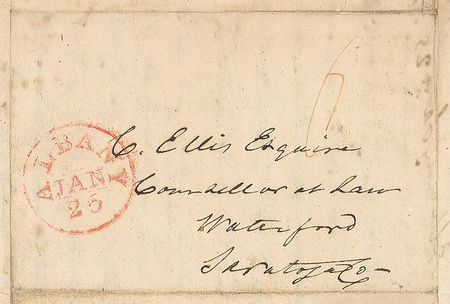 ALBANY
JAN
25
C. Ellis Esquire
Counsellor at Law
Waterford
Saratoga Co